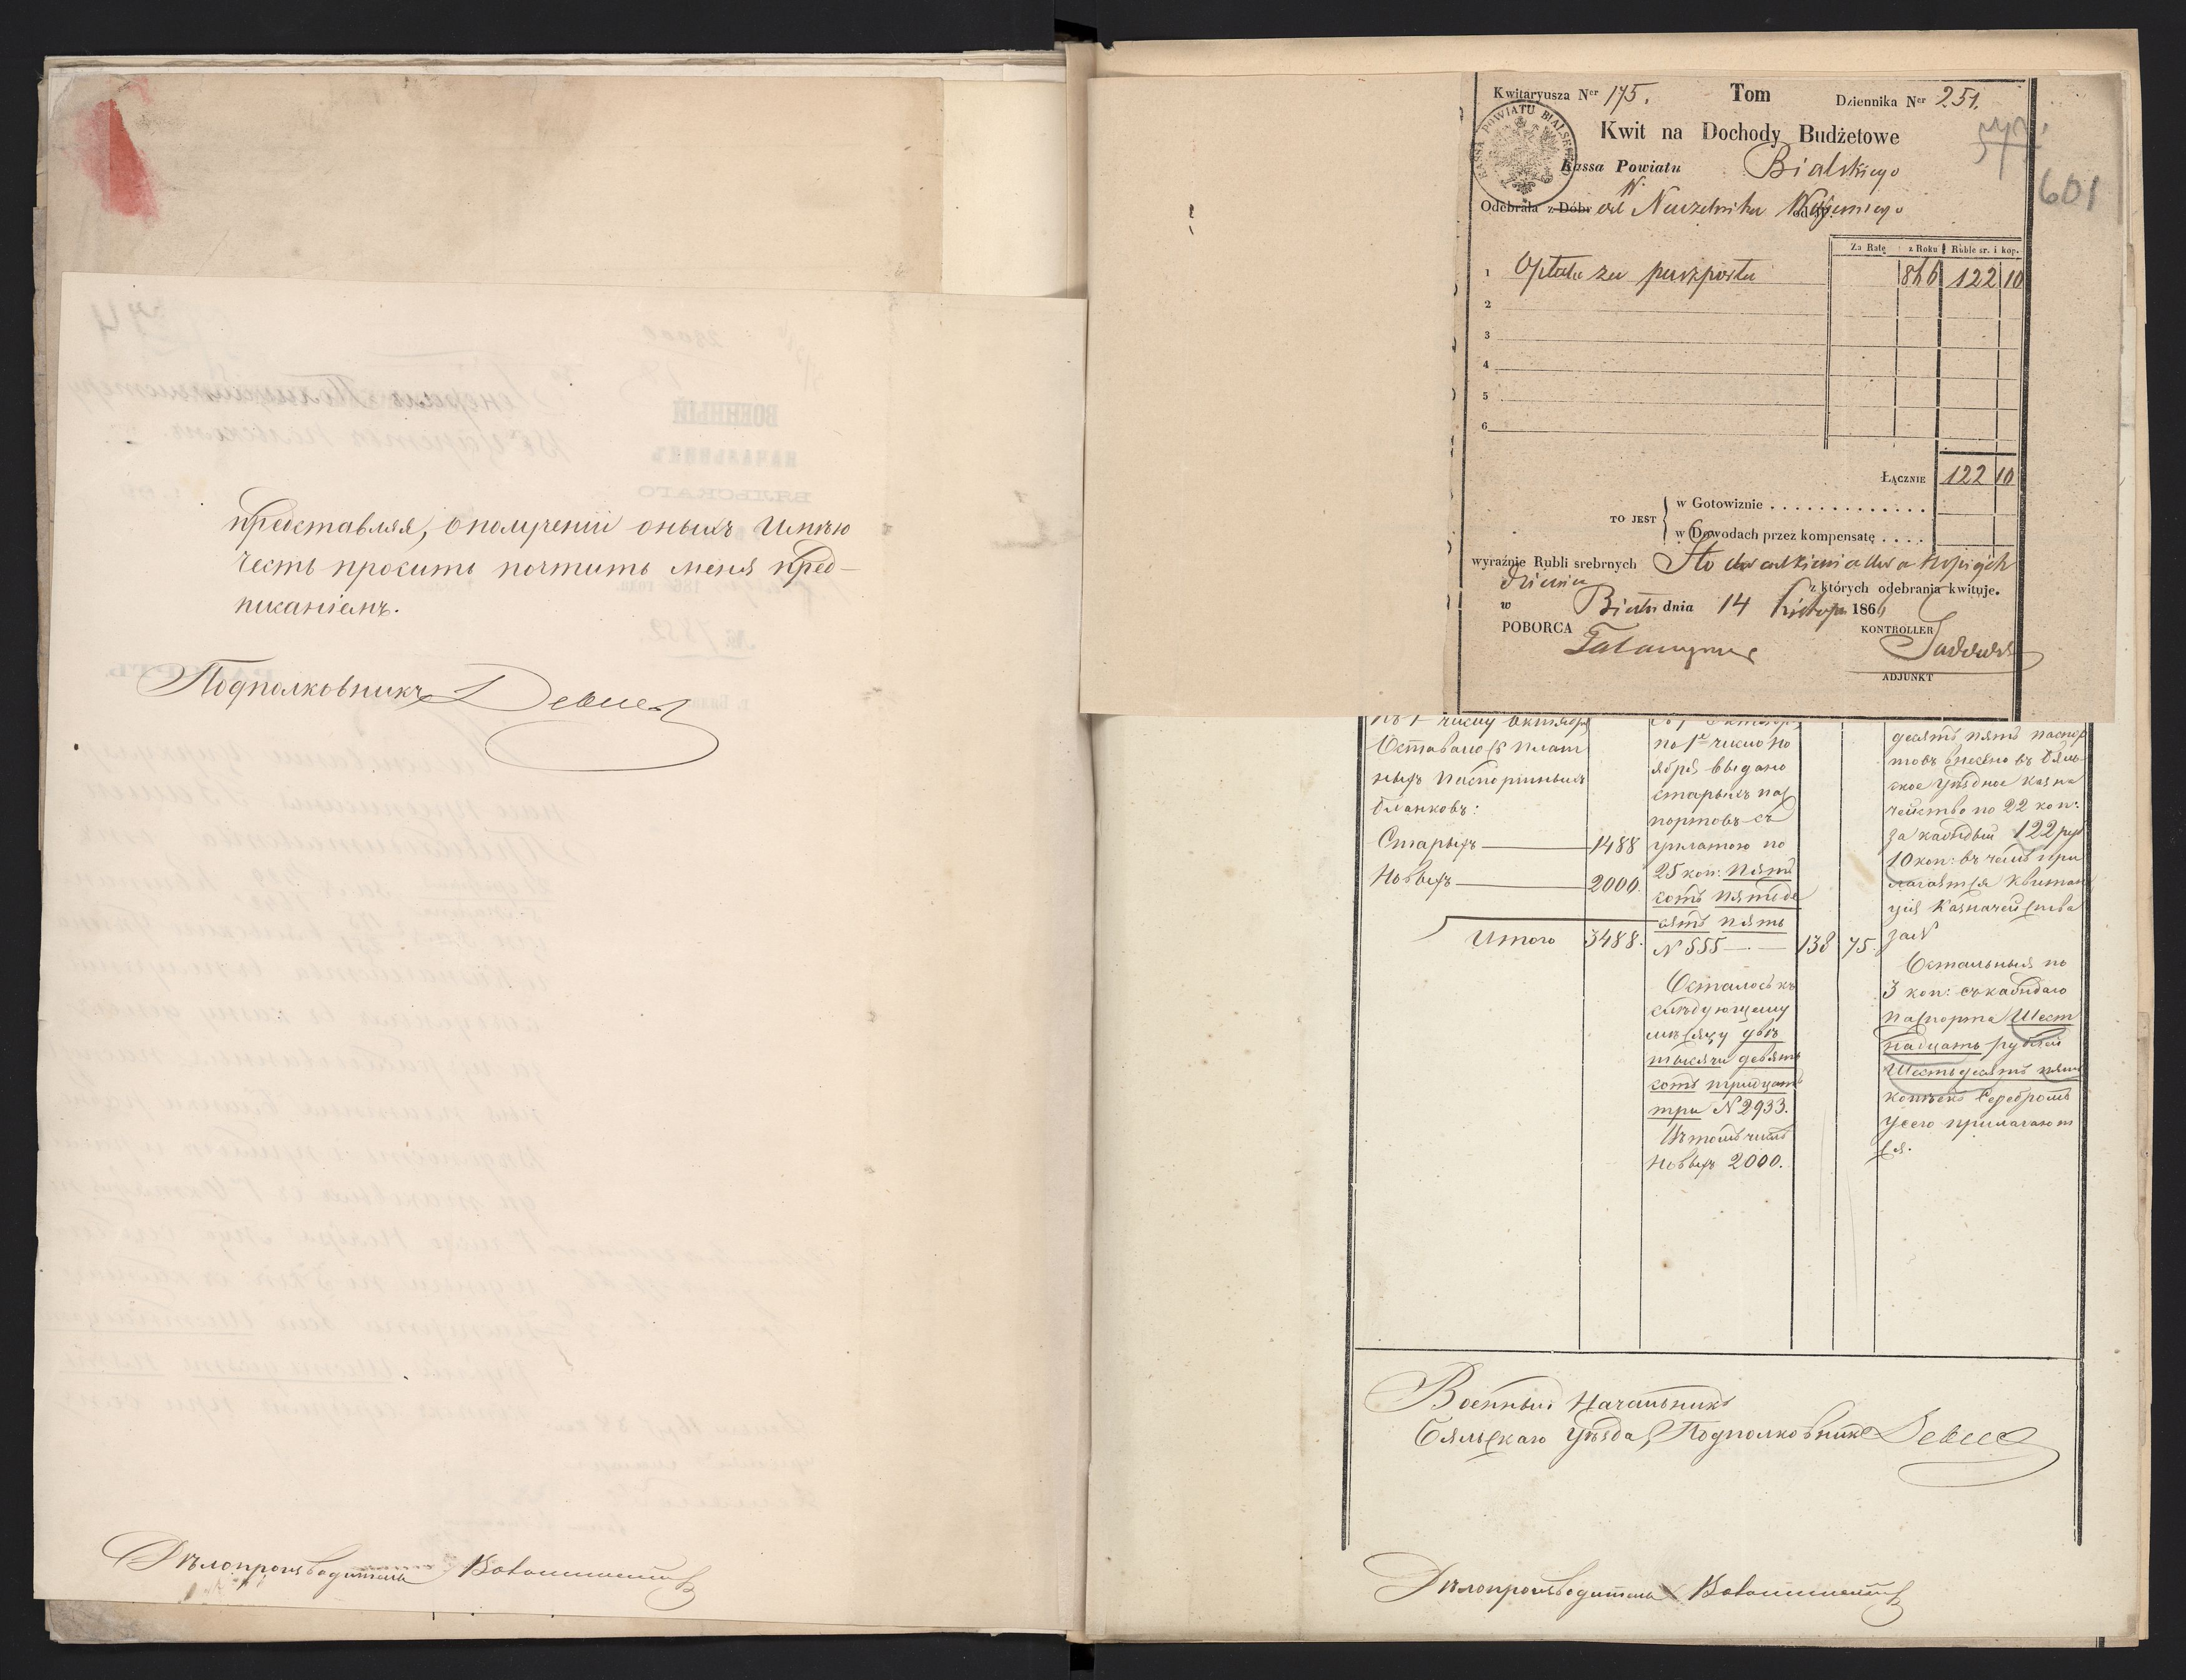 представляя, о полученіи оныхъ имѣю
честь просить почтить меня пред-
писаніемъ.
Подполковникъ
Дѣлопроизводитель
Kwitaryusza Nʳ 175. Tom Dziennika Nʳ 251.
601
KASSA POWIATU BIALSKIEGO
Kwit na Dochody Budżetowe
Kassa Powiatu Bialskiego
Odebrała z Dóbr od W. Naczelnika Wojennego
Za Ratę z Roku Ruble sr. i kop.
1 Opłata za paszporta 866 122 10
2
3
4
5
6
Łącznie 122 10
TO JEST
w Gotowiznie . . . . . . . . . . . . .
w Dowodach przez kompensatę . . . .
wyraźnie Rubli srebrnych Sto dwadzieścia dwa kopiejek
dziesięć z których odebrania kwituje.
w Biały dnia 14 Listop. 1866
POBORCA KONTROLLER
ADJUNKT
Къ 1 числу Октября
Оставалось плат
ныхъ паспортныхъ
бланковъ:
Старыхъ 1488
Новыхъ 2000.
Итого 3488.
Съ 1 Октября
по 1е число но
ября выдано
старыхъ пас
портовъ съ
уплатою по
25 коп: пять
сотъ пятьде
сятъ пять
N 555 138 75.
Осталось къ
слѣдующему
мѣсяцу двѣ
тысячи девять
сотъ тридцать
три N 2933.
Въ томъ числѣ
новыхъ 2000.
десятъ пять паспор
товъ внесено въ Бяль
ское уѣздное казна
чейство по 22 коп:
за каждый 122 руб
10 коп: въ чемъ при
лагается квитан
ція Казначейства
за N
Остальныя по
3 коп: съ каждаго
паспорта Шест
надцать рублей
Шестьдесятъ пять
копѣекъ серебромъ
у сего прилагают
ся.
Военный Начальникъ
Бяльскаго Уѣзда, Подполковникъ
Дѣлопроизводитель